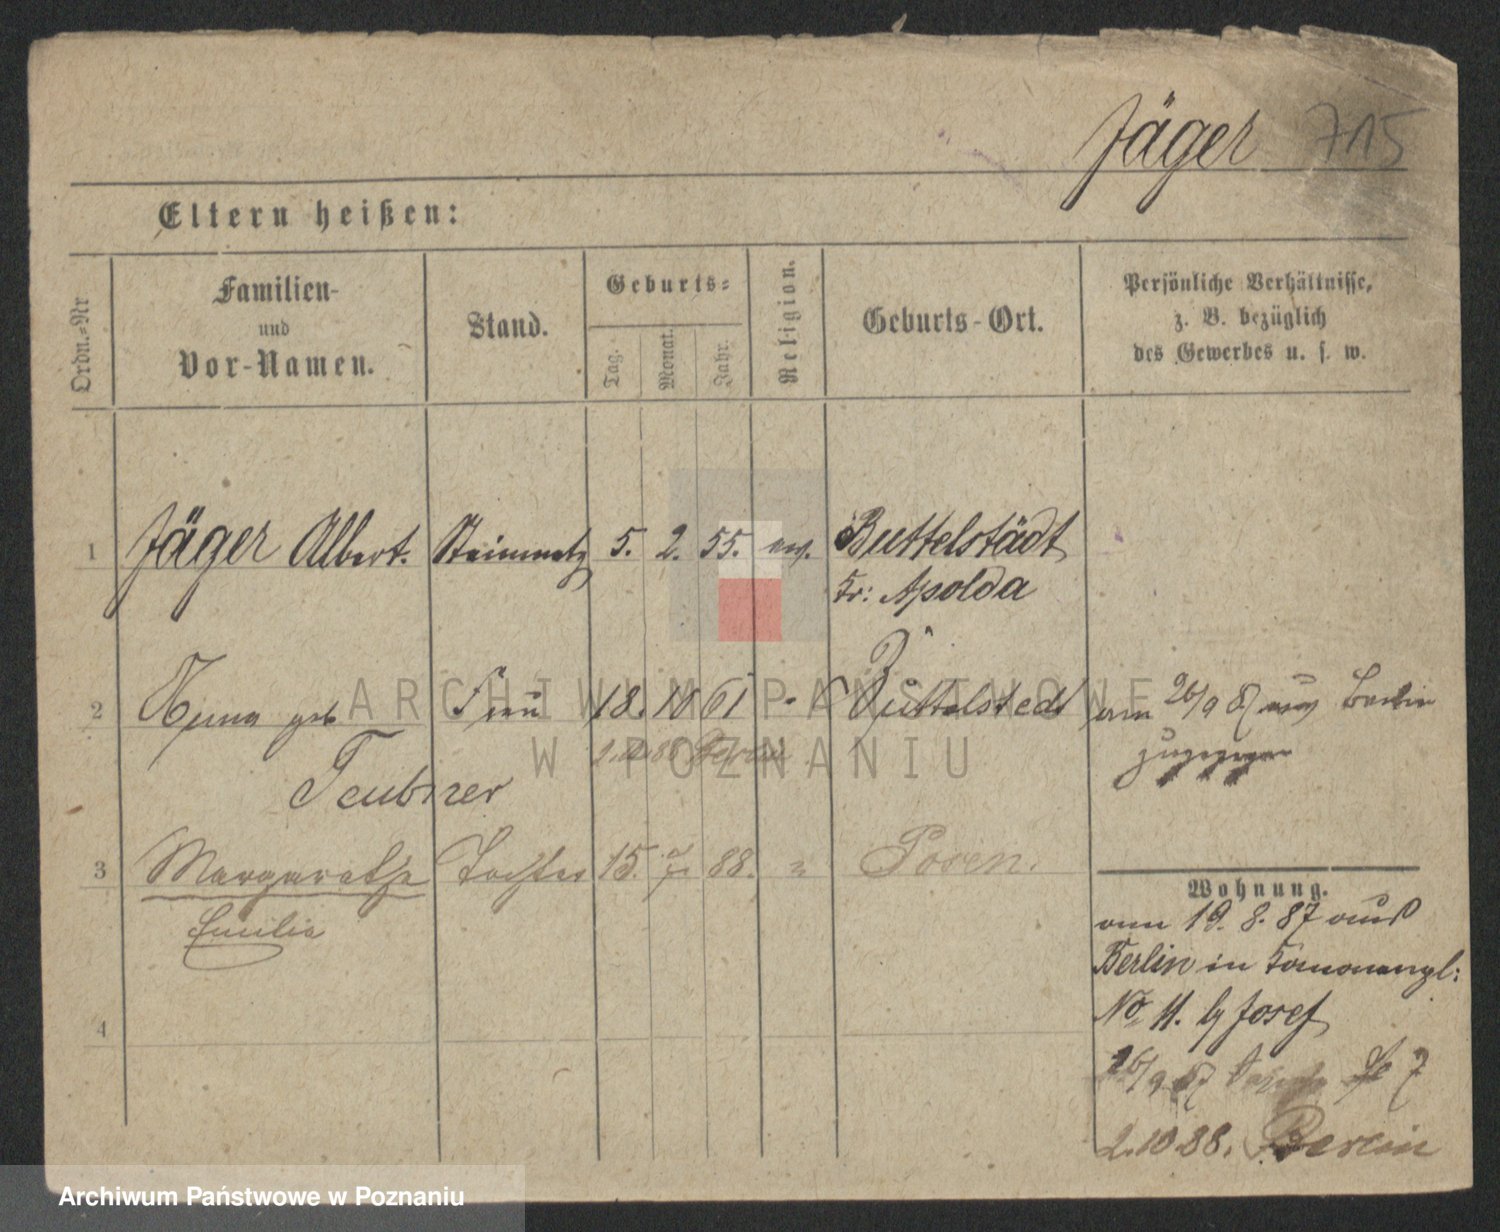 Jäger 715
Eltern heißen:
Ordn.-Nr
Familien-
und
Vor-Namen.
Stand.
Geburts-
Tag.
Monat.
Jahr.
Religion.
Geburts-Ort.
Persönliche Verhältnisse,
z. B. bezüglich
des Gewerbes u. s. w.
1 Jäger Albert. Steinmetz 5. 2. 55. ev. Buttelstädt
Kr: Apolda
2 Anna geb Frau 18. 10 61 " Buttelstedt am 26/9 87 aus Berlin
Teubner
zugezogen
2.10 88 Berlin
3 Margarethe Tochter 15. 7. 88. " Posen.
Emilie
4
Wohnung.
am 19. 8. 87 aus
Berlin in
No 11. b/ Josef
26/9 87 7
2.10 88. Berlin
ARCHIWUM PAŃSTWOWE
W POZNANIU
Archiwum Państwowe w Poznaniu